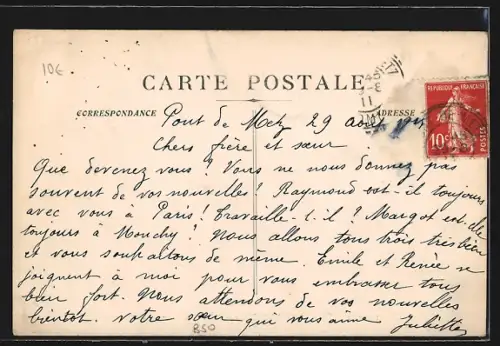 10€
CARTE POSTALE
CORRESPONDANCE
ADRESSE
REPUBLIQUE FRANÇAISE
10c
POSTES
Pont de Metz 29 août
Chers frère et sœur
Que devenez vous? Vous ne nous donnez pas
souvent de vos nouvelles! Raymond est-il toujours
avec vous à Paris! Travaille-t-il? Margot est-elle
toujours à Monchy? Nous allons tous trois très bien
et vous souhaitons de même. Emile et Renée se
joignent à moi pour vous embrasser tous
bien fort. Nous attendons de vos nouvelles
bientot. votre sœur qui vous aime Juliette
B50